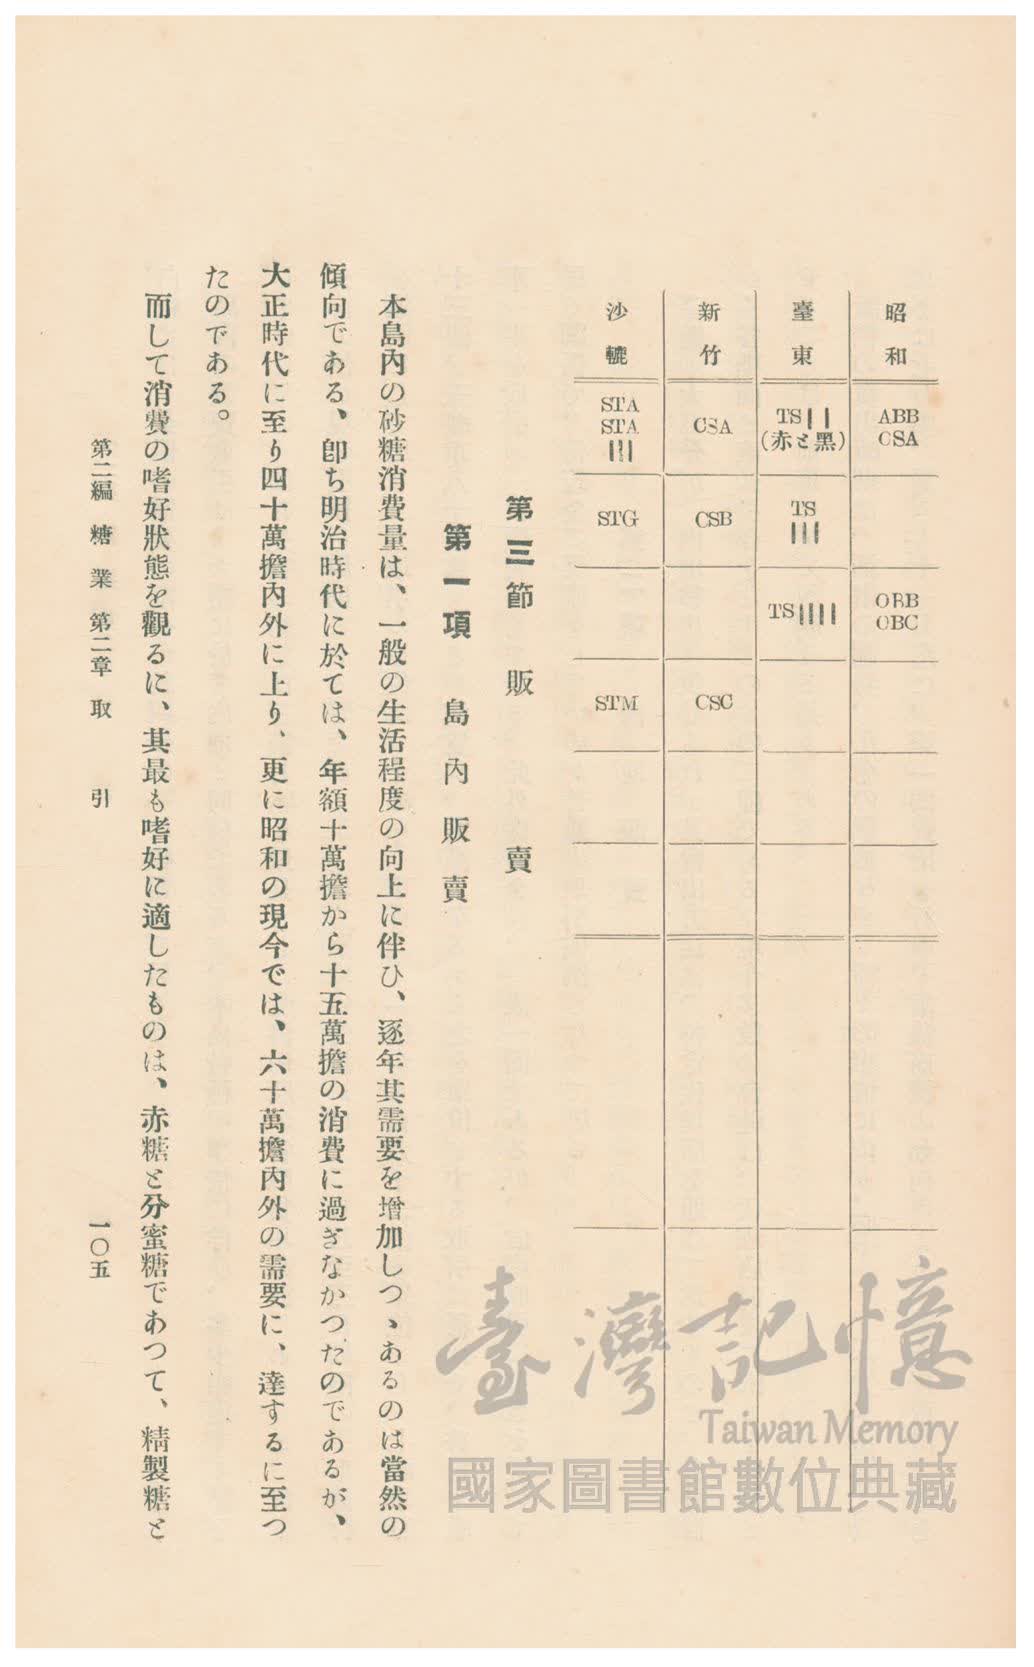 昭和
ABB
CSA
ORB
OBC
臺東
TS||
(赤と黑)
TS
|||
TS||||
新竹
CSA
CSB
CSC
沙轆
STA
STA
|||
STG
STM
第三節　販　賣
第一項　島內販賣
本島內の砂糖消費量は、一般の生活程度の向上に伴ひ、逐年其需要を增加しつゝあるのは當然の
傾向である、卽ち明治時代に於ては、年額十萬擔から十五萬擔の消費に過ぎなかつたのであるが、
大正時代に至り四十萬擔內外に上り、更に昭和の現今では、六十萬擔內外の需要に、達するに至つ
たのである。
而して消費の嗜好狀態を觀るに、其最も嗜好に適したものは、赤糖と分蜜糖であつて、精製糖と
第二編　糖業　第二章　取引
一〇五
臺灣記憶
Taiwan Memory
國家圖書館數位典藏